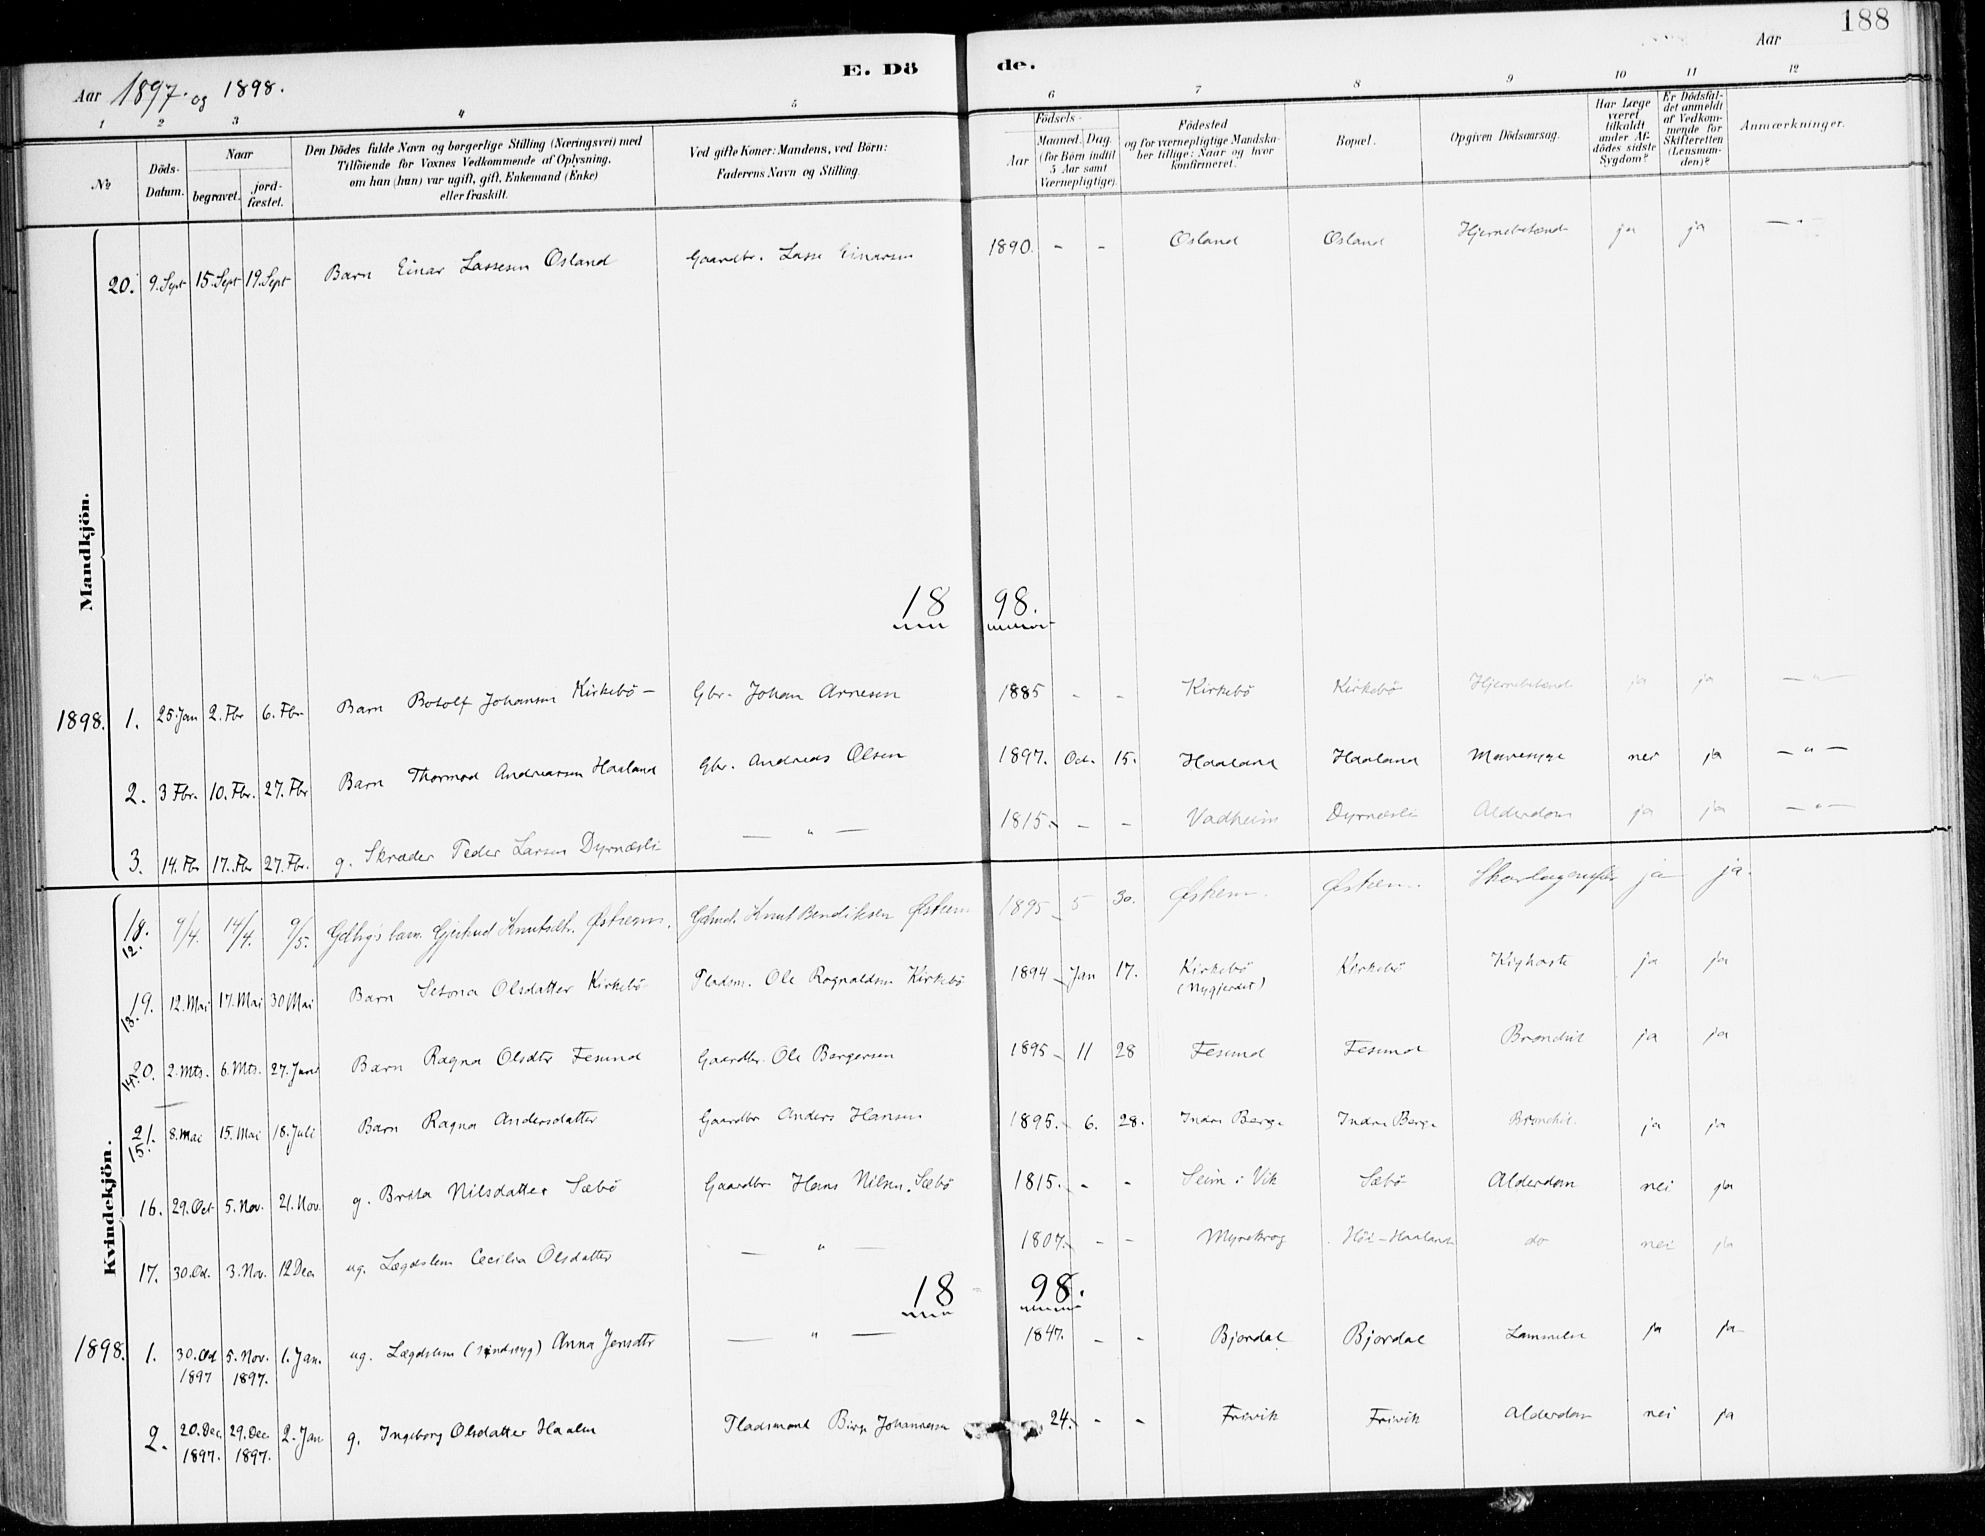 188
Aar 1897. og 1898.
E. Dö de.
Aar
1 2 3 4 5 6 7 8 9 10 11 12
№
Döds-Datum.
Naar
begravet.
jord-fæstet.
Den Dödes fulde Navn og borgerlige Stilling (Næringsvei) med
Tilföiende for Voxnes Vedkommende af Oplysning,
om han (hun) var ugift, gift, Enkemand (Enke)
eller fraskilt.
Ved gifte Koner: Mandens, ved Börn:
Faderens Navn og Stilling.
Födsels-
Aar
Maaned. Dag.
(for Börn indtil
5 Aar samt
Værnepligtige).
Födested
og for værnepligtige Mandska-
ber tillige: Naar og hvor
konfirmeret.
Bopæl.
Opgiven Dödsaarsag.
Har Læge
været
tilkaldt
under Af-
dödes sidste
Sygdom?
Er Dödsfal-
det anmeldt
af Vedkom-
mende for
Skifteretten
(Lensman-
den)?
Anmærkninger.
Mandkjön.
20. 9. Sept 15. Sept 19. Sept Barn Einar Lassesen Osland Gaardbr. Lasse Einarsen 1890. - - Osland Osland Hjernebetænd ja ja — " —
18 98.
1898. 1. 25. Jan 2. Fbr 6. Fbr. Barn Botolf Johansen Kirkebö — Gbr. Johan Arnesen 1885 - - Kirkebö Kirkebö Hjernebetænd ja ja — " —
2. 3 Fbr. 10. Fbr. 27. Fbr Barn Thormod Andreassen Haaland Gbr. Andreas Olsen 1897. Oct. 15. Haaland Haaland Mavesyge nei ja — " —
3. 14. Fbr 17. Fbr 27. Fbr. g. Skræder Peder Larsen Dyrnæsli — " — 1815. - - Vadheim Dyrnæsli Alderdom ja ja — " —
Kvindekjön.
18. 12. 9/4. 14/4. 9/5. barn Gjertrud Knutsdtr. Østrem. Knut Bendiksen Østrem 1895 5 30. Østrem. Østrem. ja ja.
19. 13. 12. Mai 17. Mai 30 Mai Barn Olsdatter Kirkebö Pladsm. Ole Rognaldsen Kirkebö 1894 Jan 17. Kirkebö Kirkebö Kighoste ja ja
(Nygjerdet)
20. 14. 2. Mts. 6. Mts. 27. Juni Barn Ragna Olsdtr Fesund Gaardbr. Ole Bergersen 1895 11 28 Fesund Fesund Bronchit ja ja
21. 15. 8. Mai 15. Mai 18. Juli Barn Ragna Andersdatter Gaardbr Anders Hansen 1895. 6. 28. Indre Berge Indre Berge Bronchit. ja ja
16. 29. Oct 5. Nov. 21. Nov. g. Brita Nilsdatter Sæbö Gaardbr Hans Nilsen Sæbö 1815. - - Seim i Vik Sæbö Alderdom nei ja
17. 30. Oct. 3. Nov. 12 Dec ug. Lægdslem Cecilia Olsdatter — " — 1807. - - Myrekrog Höi-Haaland do nei ja
18 98.
1898. 1. 30. Oct 1897 5. Nov. 1897. 1. Jan. ug. Lægdslem (sindssyg) Anna Jensdtr — " — 1847. - - Bjordal Bjordal Lammelse ja ja
2. 20. Dec. 1897. 29. Dec 1897. 2. Jan g. Ingeborg Olsdatter Pladsmand Birge Johannesen 24. - - Frivik Frivik Alderdom nei ja